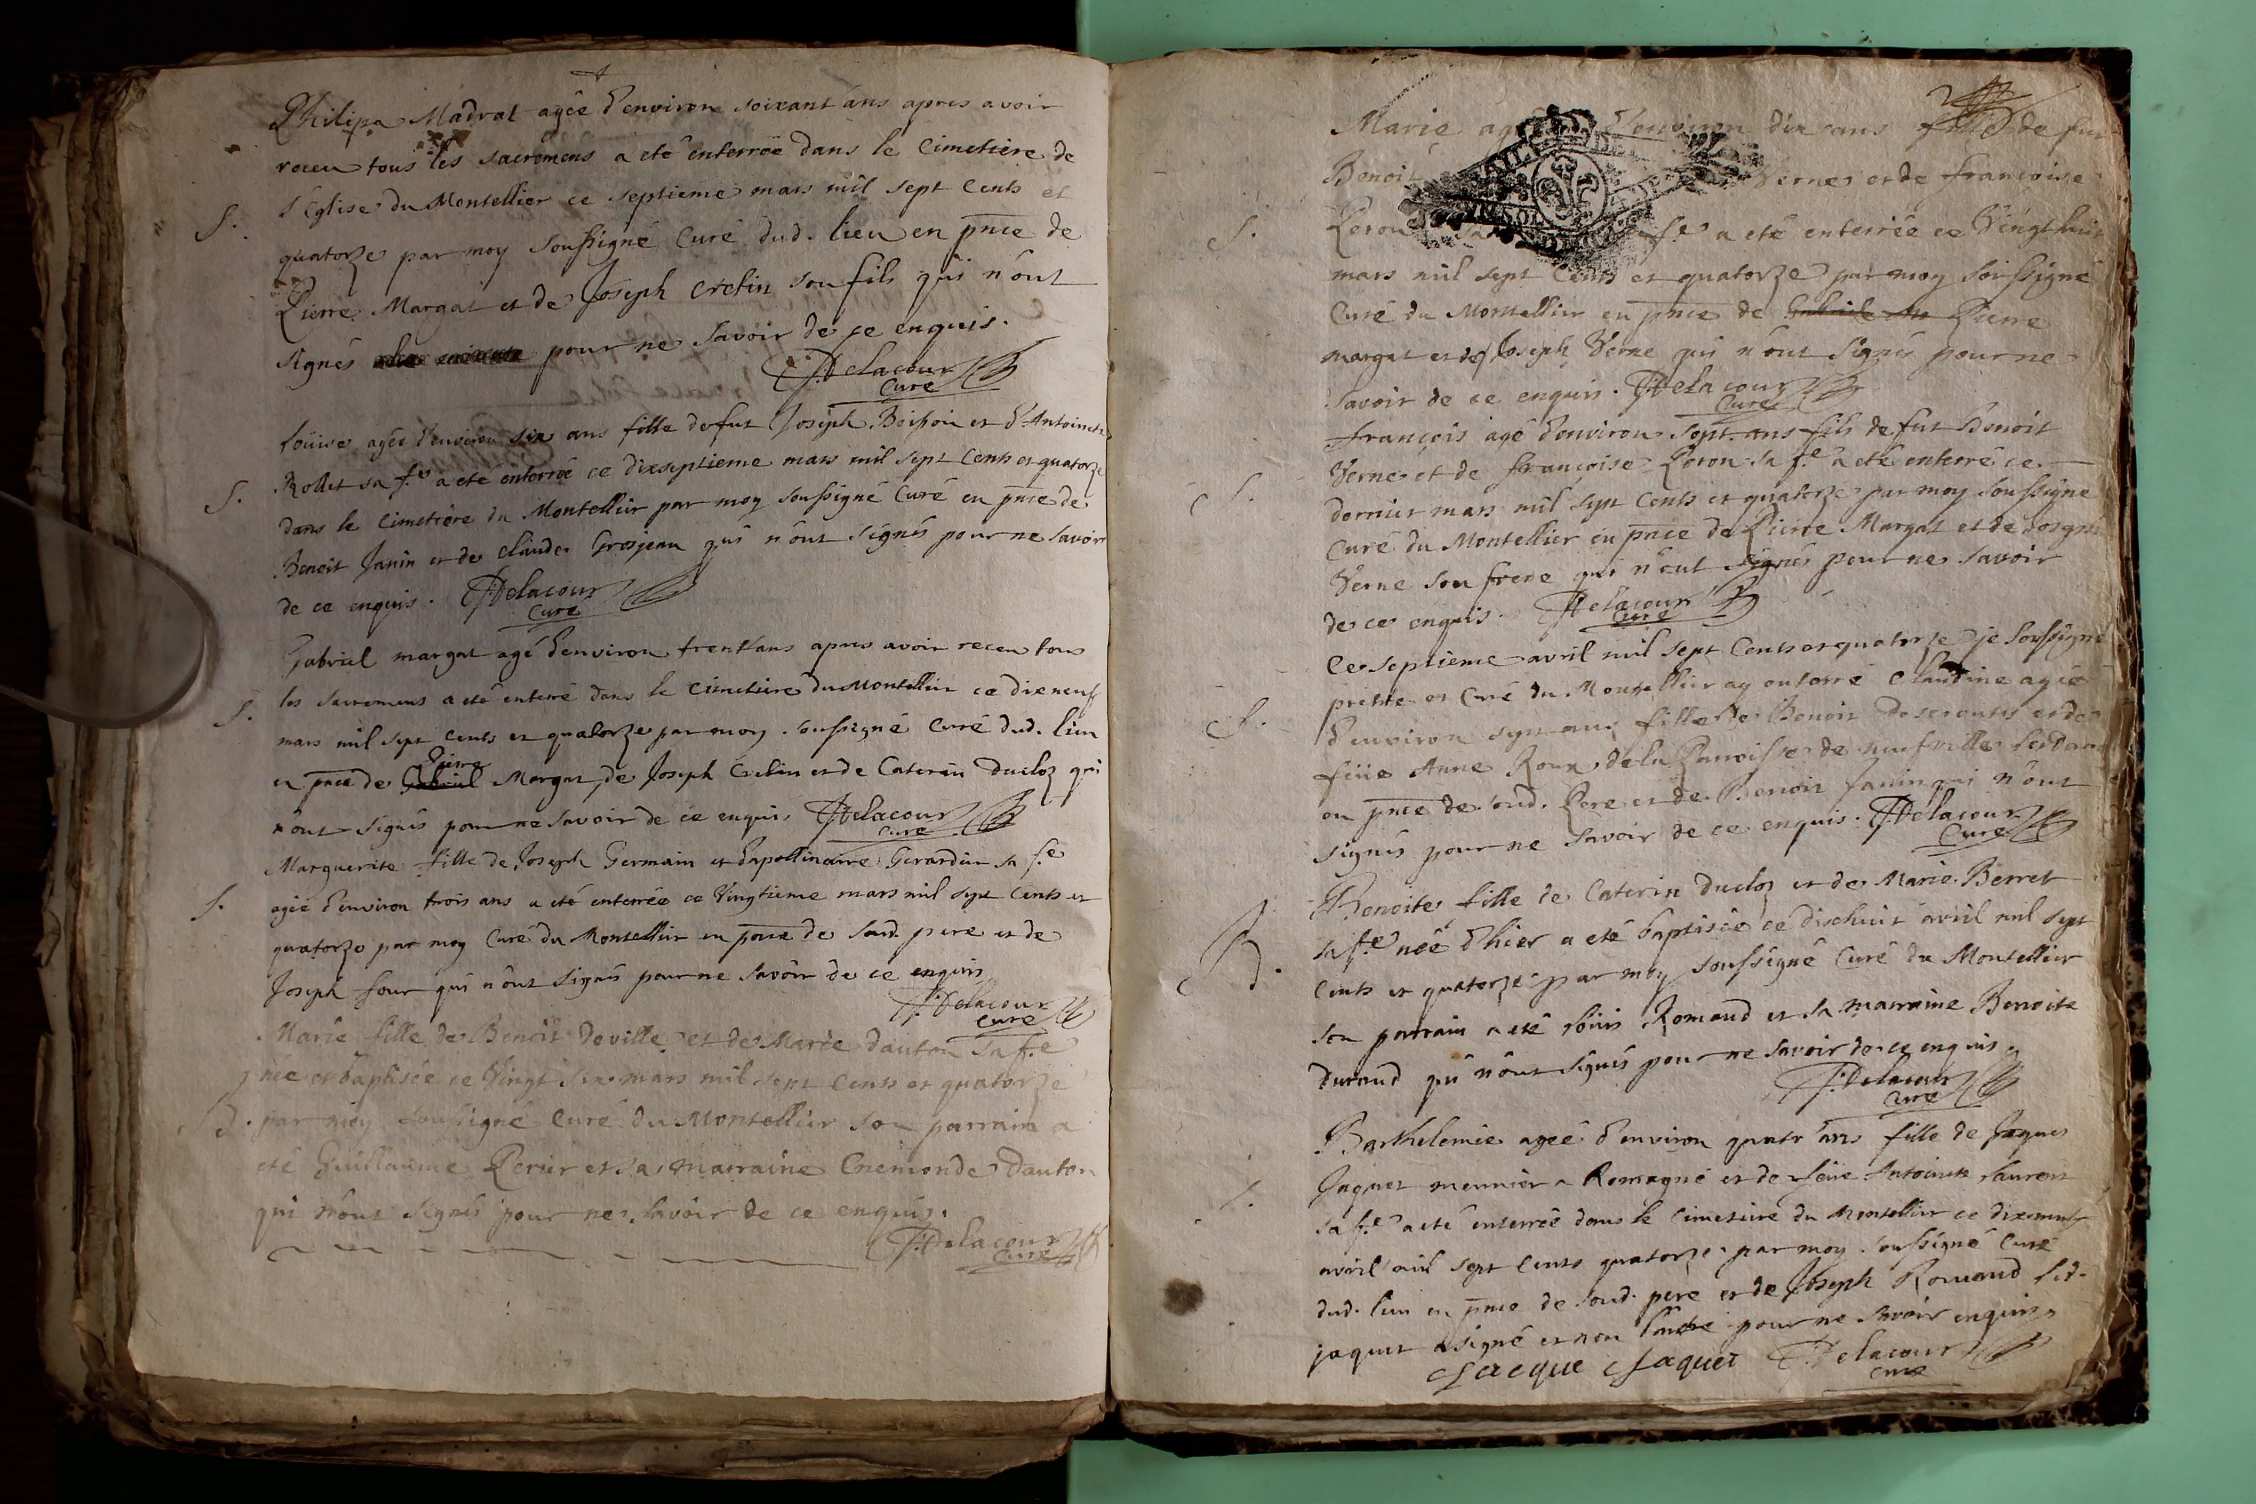 Philipa Madrat agée d'environ soixant'ans apres avoir
receu tous les sacremens a eté enterrée dans le Cimetiere de
S. l'Eglise du Montellier ce septieme mars mil sept Cents et
quatorze par moy soussigné Curé dud. lieu en pnce de
Pierre Margat et de Joseph Cretin son fils qui n'ont
signés pour ne savoir de ce enquis.
F. Delacour
Curé
Loüise agée d'environ six ans fille de fut Joseph Boisson et d'Antoinette
Rollet sa f.e a eté enterrée ce dixseptieme mars mil sept Cents et quatorze
S. dans le Cimetiere du Montellier par moy soussigné Curé en pnce de
Benoit Janin et de Claude Grosjean qui n'ont signés pour ne savoir
de ce enquis. F. Delacour
Curé
Gabriel margat agé d'environ trent'ans apres avoir receu tous
S. les sacremens a eté enterré dans le Cimetiere du Montellier ce dixneuf
mars mil sept cents et quatorze par moy soussigné Curé dud. lieu
Pierre
en pnce de Gabriel Margat, de Joseph Cretin et de Caterin Ducloz qui
n'ont signés pour ne savoir de ce enquis F. Delacour
Curé
Marguerite fille de Joseph Germain et d'apollinaire Gerardin sa f.e
S. agée d'environ trois ans a eté enterrée ce Vingtieme mars mil sept Cents et
quatorze par moy Curé du Montellier en pnce de soud. pere et de
Joseph four qui n'ont signés pour ne savoir de ce enquis
F. Delacour
Curé
Marie fille de Benoit Deville et de Marie dauton sa f.e
née et baptisée ce Vingt six mars mil sept Cents et quatorze
B. par moy soussigné Curé du Montellier son parrain a
eté Guillaume Perier et sa marraine Enemonde Dauton
qui n'ont signés pour ne savoir de ce enquis.
F. Delacour
Curé
Marie d'environ dix ans fille de fut
Benoit Verne et de francoise
S. Peron sa f.e a eté enterrée ce Vingt huit
mars mil sept Cents et quatorze par moy soussigné
Curé du Montellier en pnce de Pierre
margat et de Joseph Verne qui n'ont signés pour ne
savoir de ce enquis. F. Delacour
Curé
François agé d'environ sept ans fils de fut Benoit
Verne et de françoise Peron sa f.e a eté enterré ce
S. dernier mars mil sept Cents et quatorze par moy soussigné
Curé du Montellier en pnce de Pierre Margat et de Joseph
Verne son frere qui n'ont signés pour ne savoir
de ce enquis. F. Delacour
Curé
Ce septieme avril mil sept Cents et quatorze je soussigné
prêtre et Curé du Montellier ay enterré Claudine agée
S. d'environ sept ans fille de Benoit et de
feüe Anne Roux de la Parroisse de neufville les Dames
en pnce de soud. Pere et de Benoit Janin qui n'ont
signés pour ne savoir de ce enquis. F. Delacour
Curé
Benoite fille de Caterin Ducloz et de Marie Berret
sa f.e née d'hier a eté baptisée ce dixhuit avril mil sept
B. Cents et quatorze par moy soussigné Curé du Montellier
son parrain a eté loüis Romand et sa marraine Benoite
Durand qui n'ont signés pour ne savoir de ce enquis
F. Delacour
Curé
Barthelemie agée d'environ quatr'ans fille de Jaques
S. Jaquet meunier a Romagne et de feüe Antoinette Laurent
sa f.e a eté enterrée dans le Cimetiere du Montellier ce dixneuf
avril mil sept Cents quatorze par moy soussigné Curé
dud. lieu en pnce de soud. pere et de Joseph Romand led.
jaquet a signé et non l'autre pour ne savoir enquis
Jacque Jaquet F. Delacour
Curé